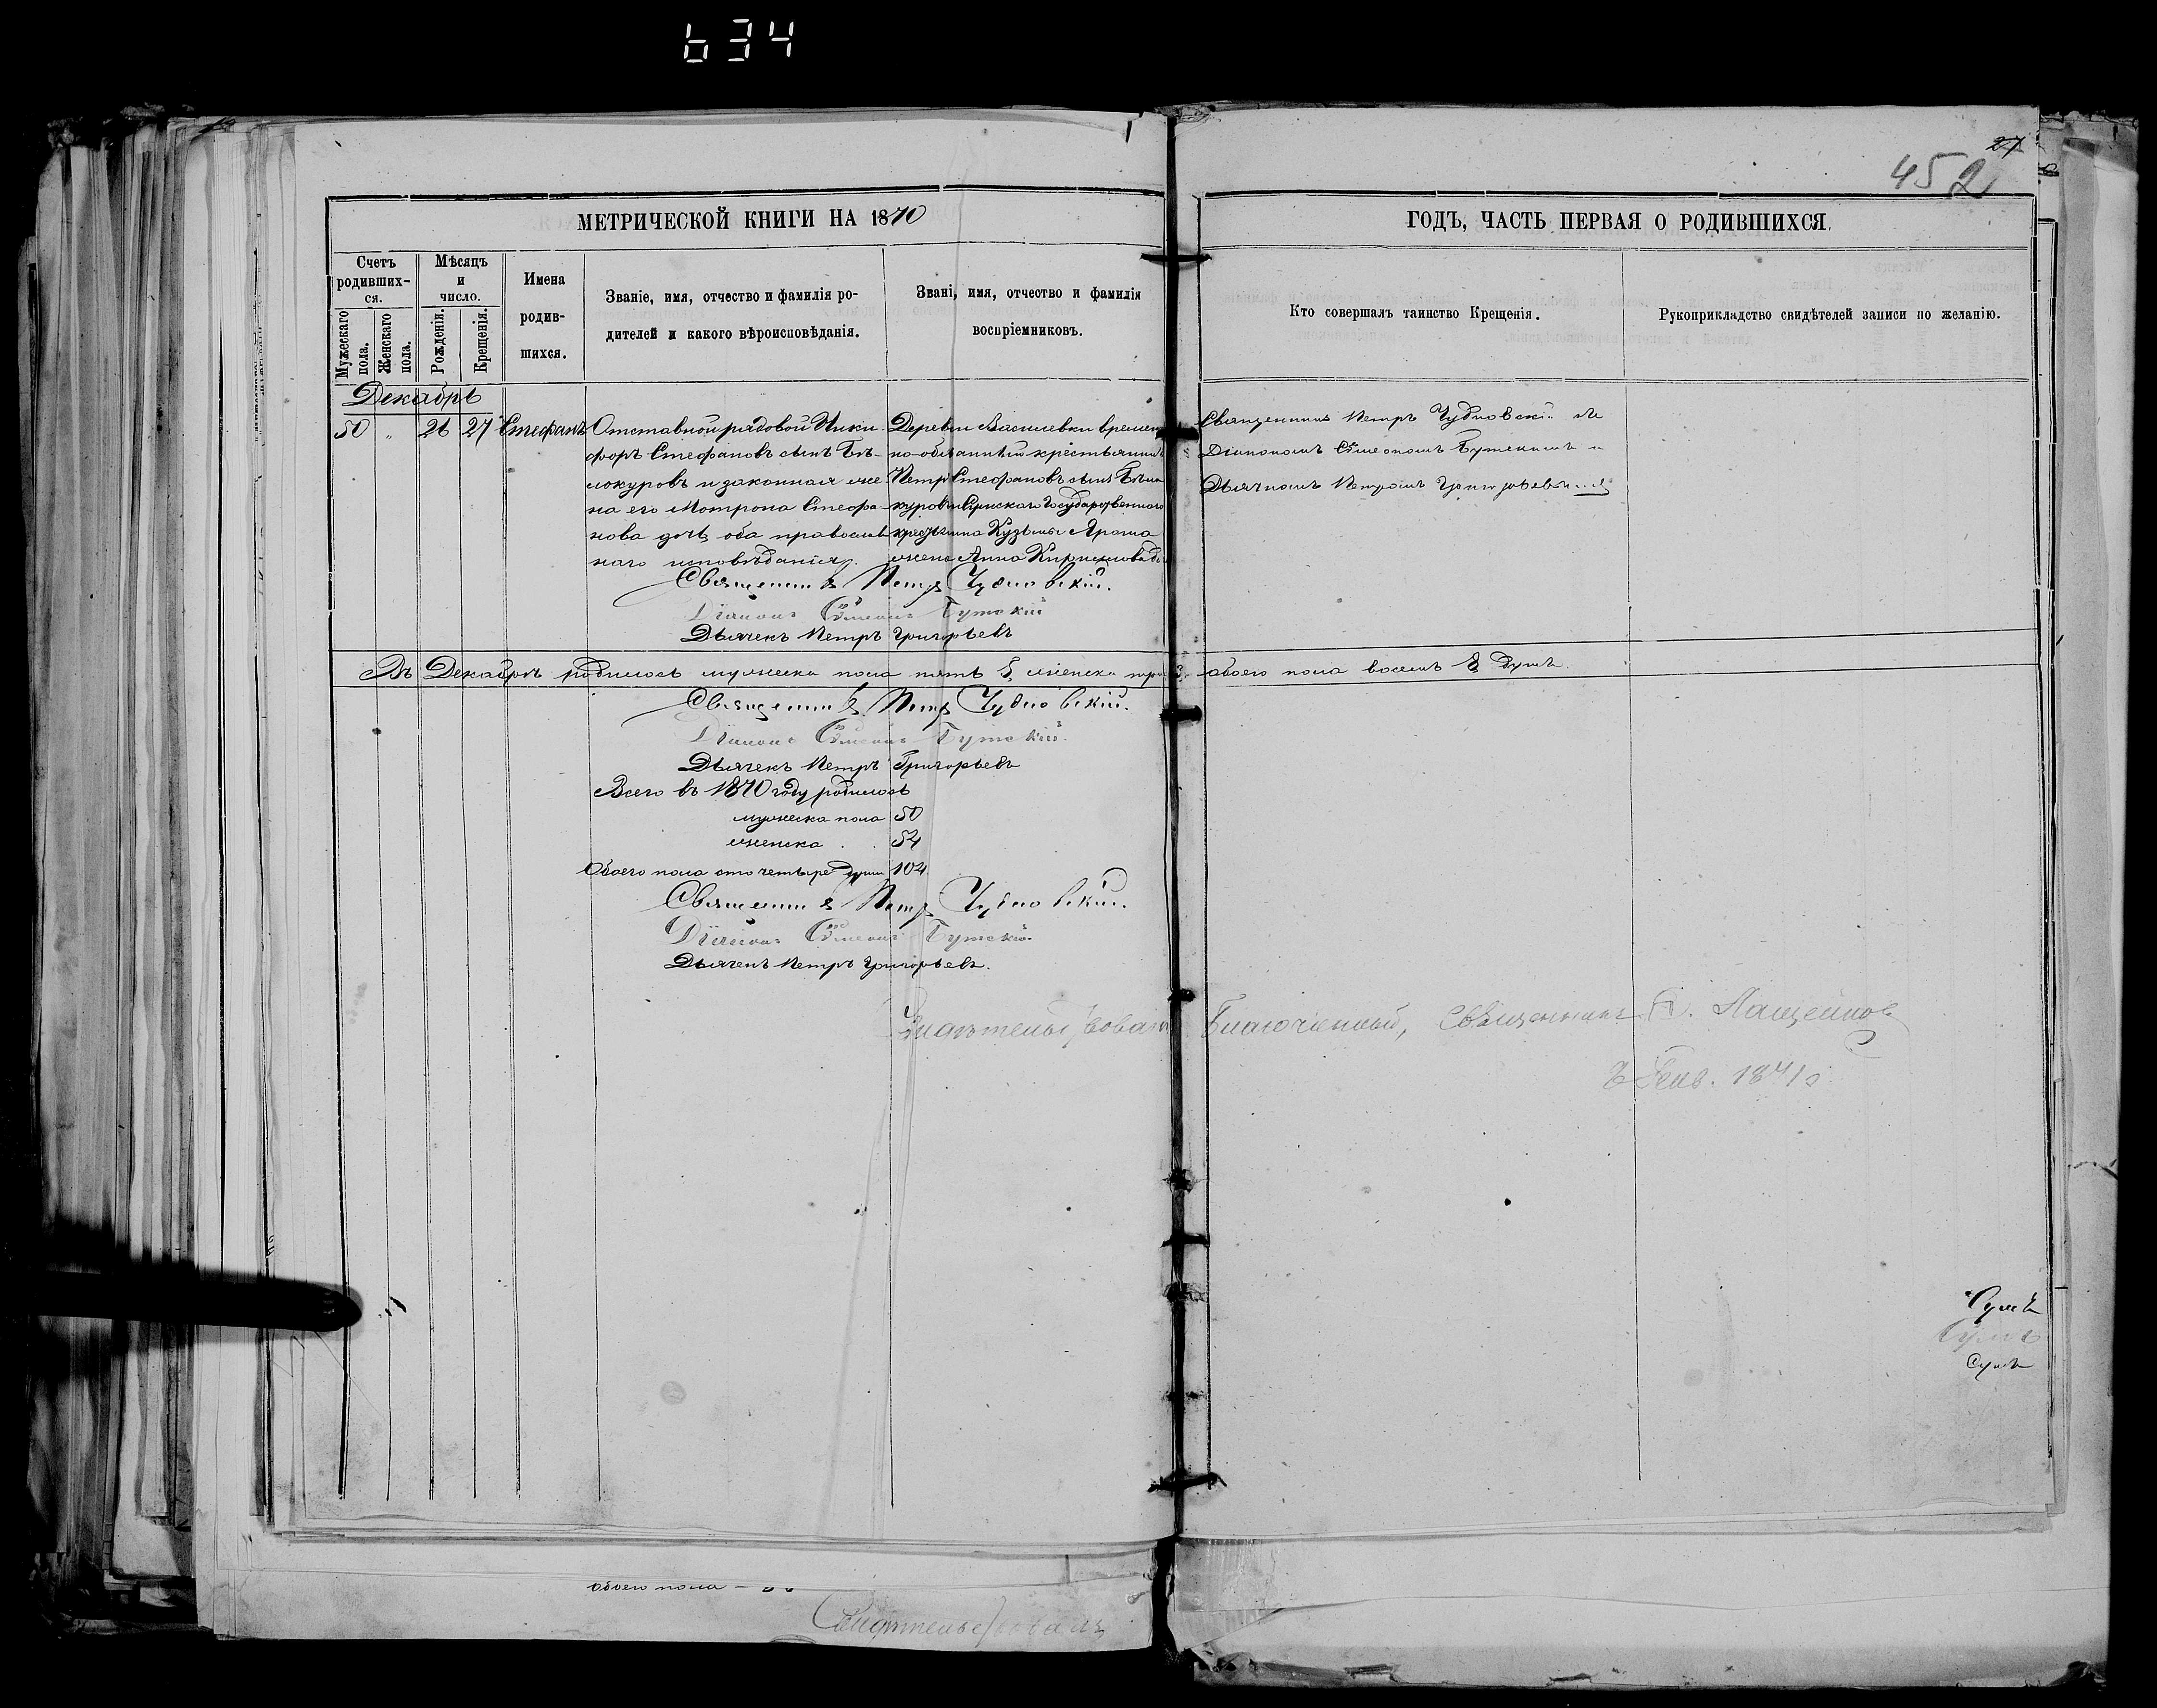 634
27
452
МЕТРИЧЕСКОЙ КНИГИ НА 1870
ГОДЪ, ЧАСТЬ ПЕРВАЯ О РОДИВШИХСЯ.
Счетъ родивших-ся.
Мужескаго пола.
Женскаго пола.
Мѣсяцъ и число.
Рожденія.
Крещенія.
Имена родив-шихся.
Званіе, имя, отчество и фамилія ро-
дителей и какого вѣроисповѣданія.
Звані, имя, отчество и фамилія
воспріемниковъ.
Кто совершалъ таинство Крещенія.
Рукоприкладство свидѣтелей записи по желанію.
Декабрь
50 " 26 27 Стефанъ
Отставной рядовой Ники-
форъ Стефановъ сынъ Бѣ-
локуровъ и законная же-
на его Мотрона Стефа-
нова дочь, оба православ
наго исповѣданія.
Деревни Василевки времен
но-обязанный крестьянинъ
Петръ Стефановъ сынъ Бѣло
куровъ и Государственнаго
крестьянина Кузьмы
жена Анна
Священникъ Петръ Чудновскій съ
Діакономъ Симеономъ Бутскимъ и
Дьячкомъ Петромъ Григорьевымъ
Священникъ Петръ Чудновскій.
Діаконъ Симеонъ Бутскій
Дьячекъ Петръ Григорьевъ
Въ Декабрѣ родилось мужеска пола пять 5, женска три 3, обоего пола восемь 8 душъ.
Священникъ Петръ Чудновскій.
Діаконъ Симеонъ Бутскій.
Дьячекъ Петръ Григорьевъ
Всего въ 1870 году родилось
мужеска пола 50
женска . . 54
Обоего пола сто четыре души 104
Священникъ Петръ Чудновскій.
Діаконъ Симеонъ Бутскій.
Дьячекъ Петръ Григорьевъ.
Свидѣтельствовалъ Благочинный, Священникъ
Генв. 1871
обоего пола —
Свидѣтельствовалъ